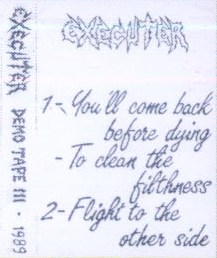 EXECUTER DEMO TAPE III • 1989
EXECUTER
1-. You'll come back
before dying
- To clean the
filthness
2- Flight to the
other side